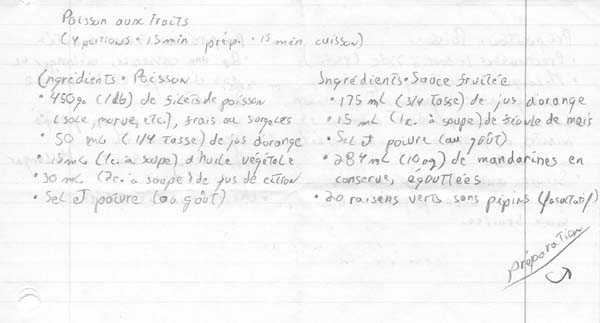 Poisson aux fruits
(4 portions • 15 min prépi • 15 min cuisson)
Ingrédients • Poisson
• 450 ga (1 lb) de filets de poisson
(sole, morue, etc.), frais ou surgelés
• 50 mL (1/4 tasse) de jus d'orange
• 15 mL (1 c. à soupe) d'huile végétale
• 30 mL (2 c. à soupe) de jus de citron
• Sel et poivre (au goût)
Ingrédients • Sauce fruitée
• 175 mL (3/4 tasse) de jus d'orange
• 15 mL (1 c. à soupe) de fécule de maïs
• Sel et poivre (au goût)
• 284 mL (10 oz) de mandarines en
conserve, égouttées
• 20 raisens verts sans pépins (facultatif)
préparation